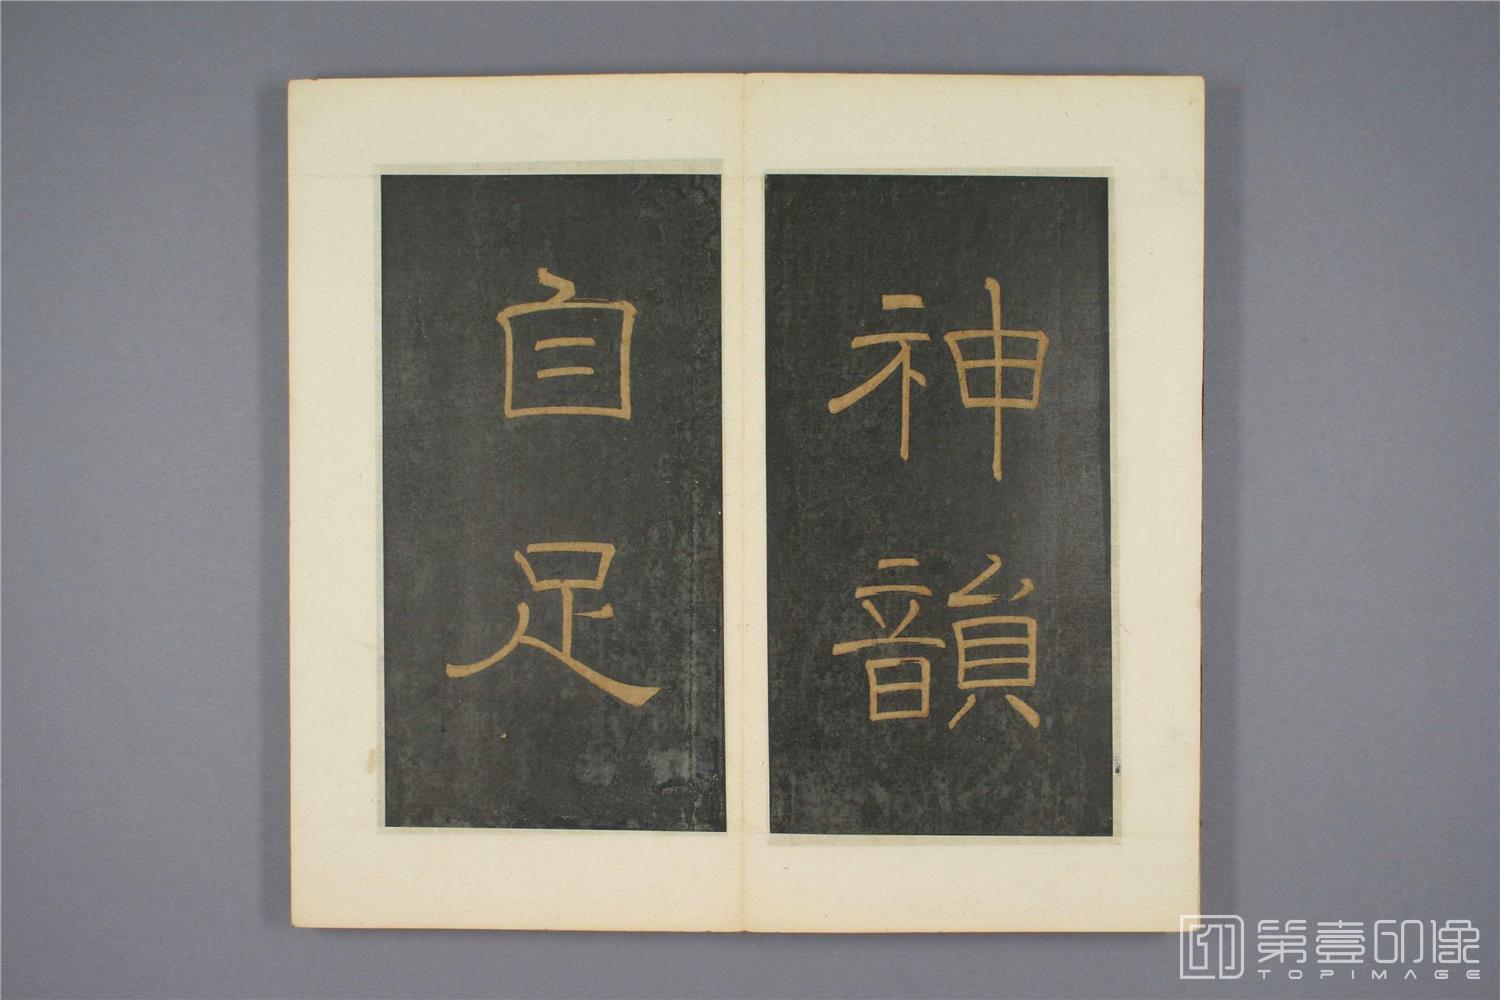 神韻
自足
第壹印像
TOPIMAGE